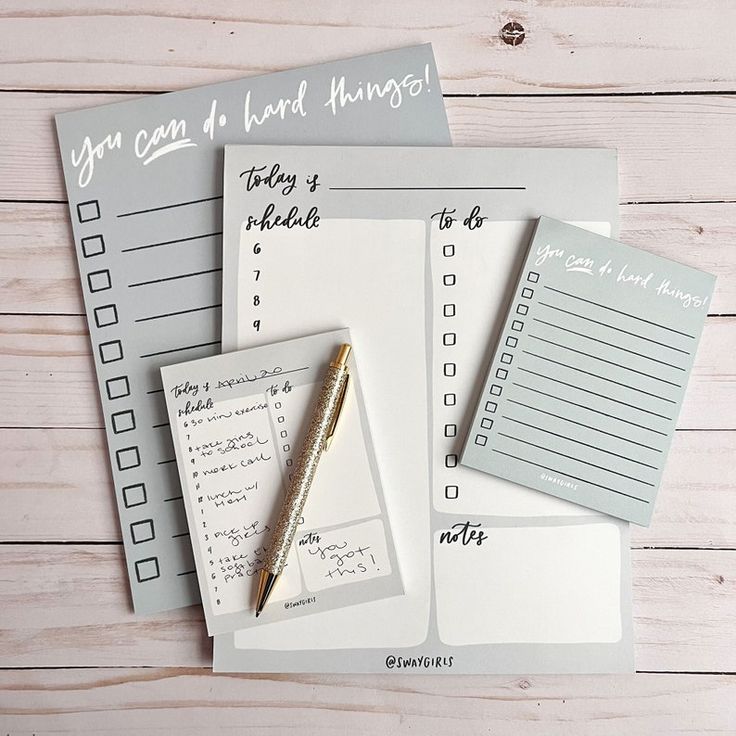 You can do hard things!
today is
schedule
to do
6
7
8
9
notes
@SWAYGIRLS
You can do hard things!
@SWAYGIRLS
today is April 20
schedule
to do
6 30 min exercise
7
8 take girls
to school
10 work call
11
12 lunch w/
1
2
3 pick up
4 girls
5 take
6
7
8
notes
you
got
this!
@SWAYGIRLS